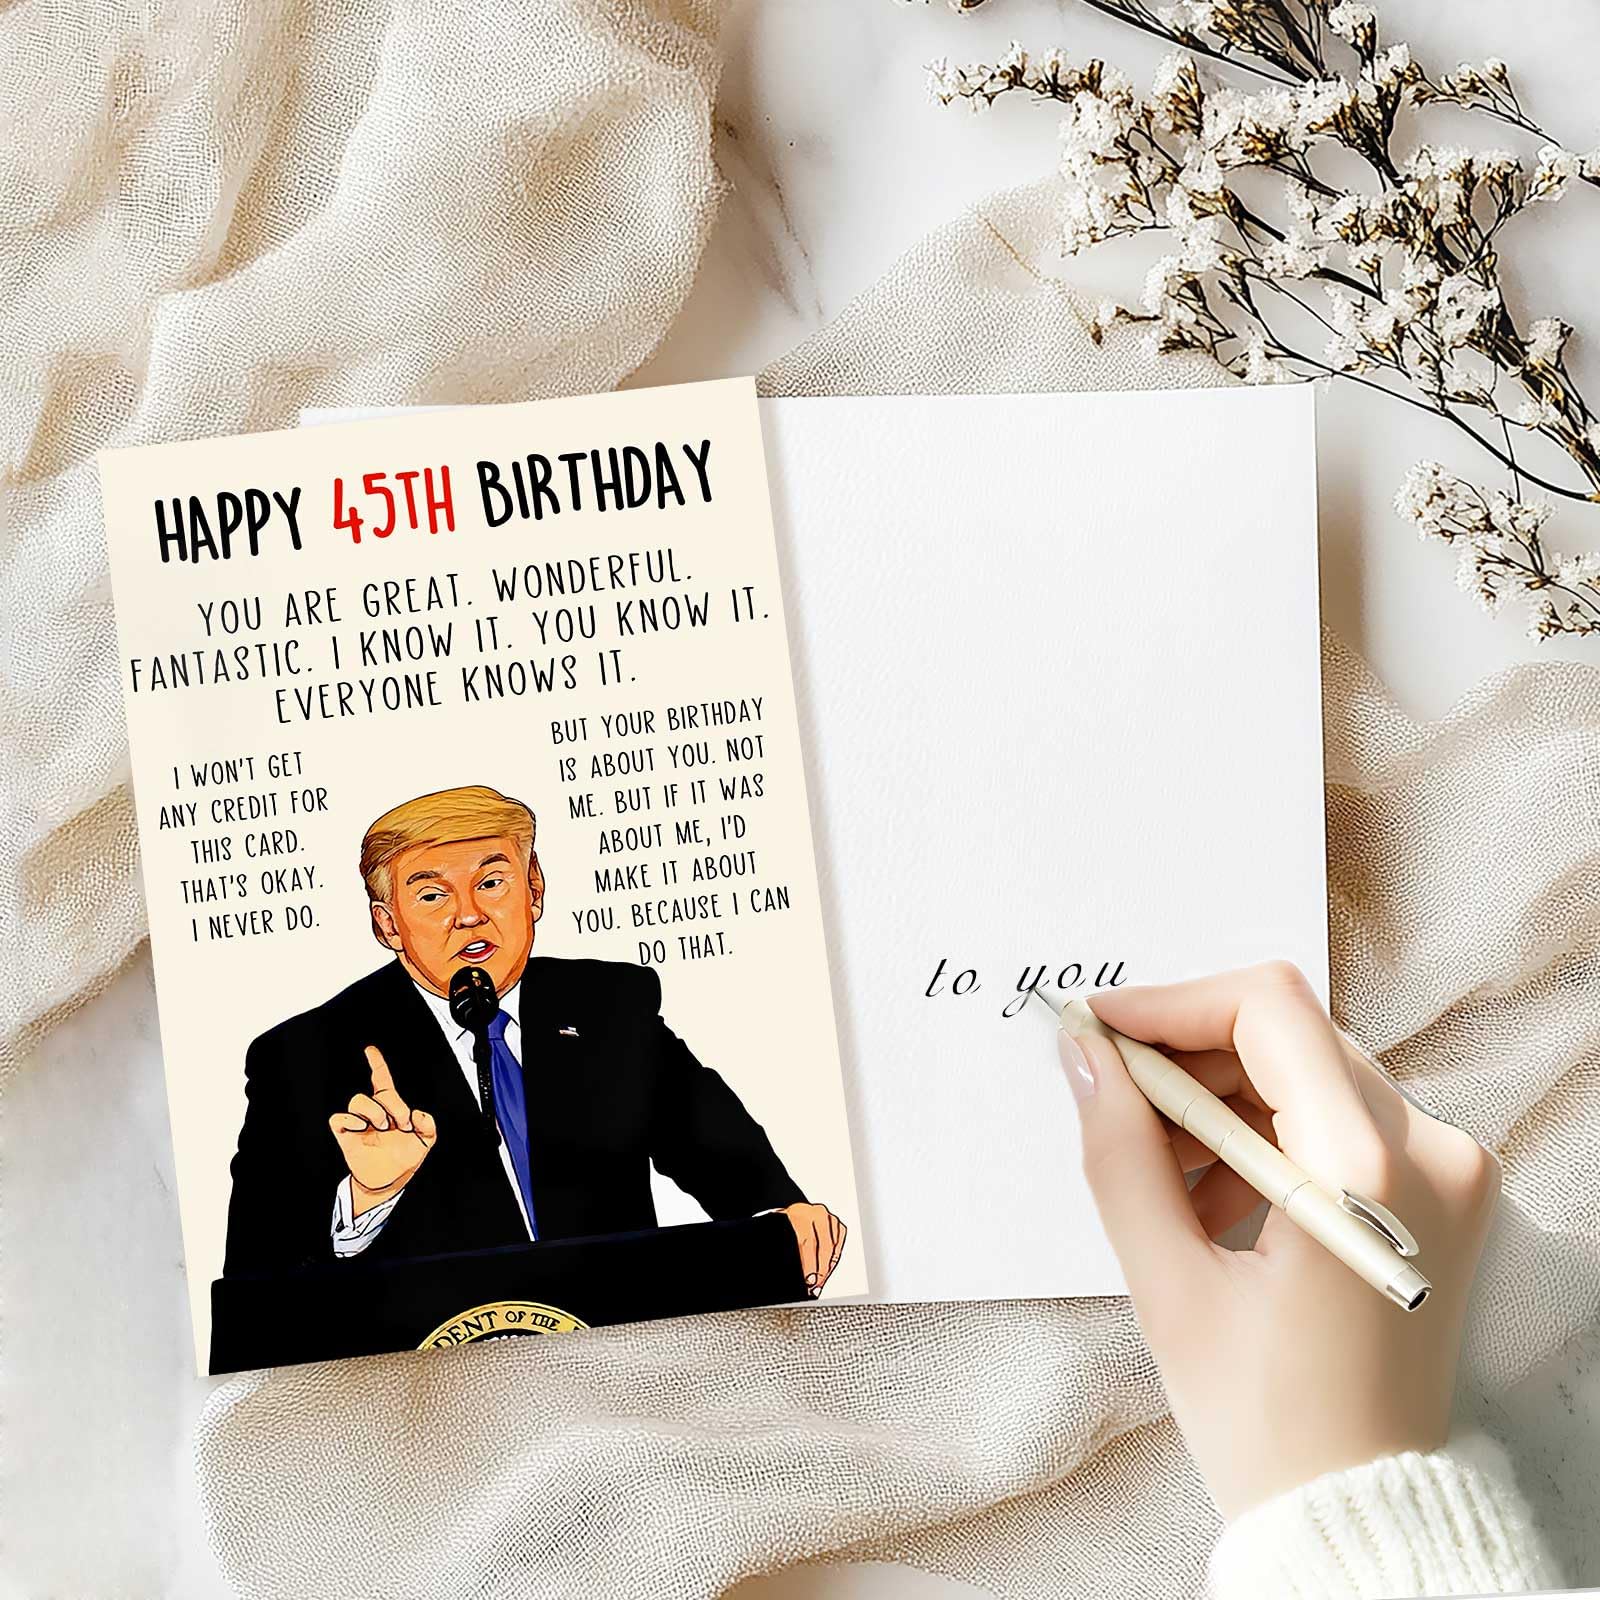 HAPPY 45TH BIRTHDAY
YOU ARE GREAT. WONDERFUL.
FANTASTIC. I KNOW IT. YOU KNOW IT.
EVERYONE KNOWS IT.
I WON'T GET
ANY CREDIT FOR
THIS CARD.
THAT'S OKAY.
I NEVER DO.
BUT YOUR BIRTHDAY
IS ABOUT YOU. NOT
ME. BUT IF IT WAS
ABOUT ME, I'D
MAKE IT ABOUT
YOU. BECAUSE I CAN
DO THAT.
DENT OF THE
to you